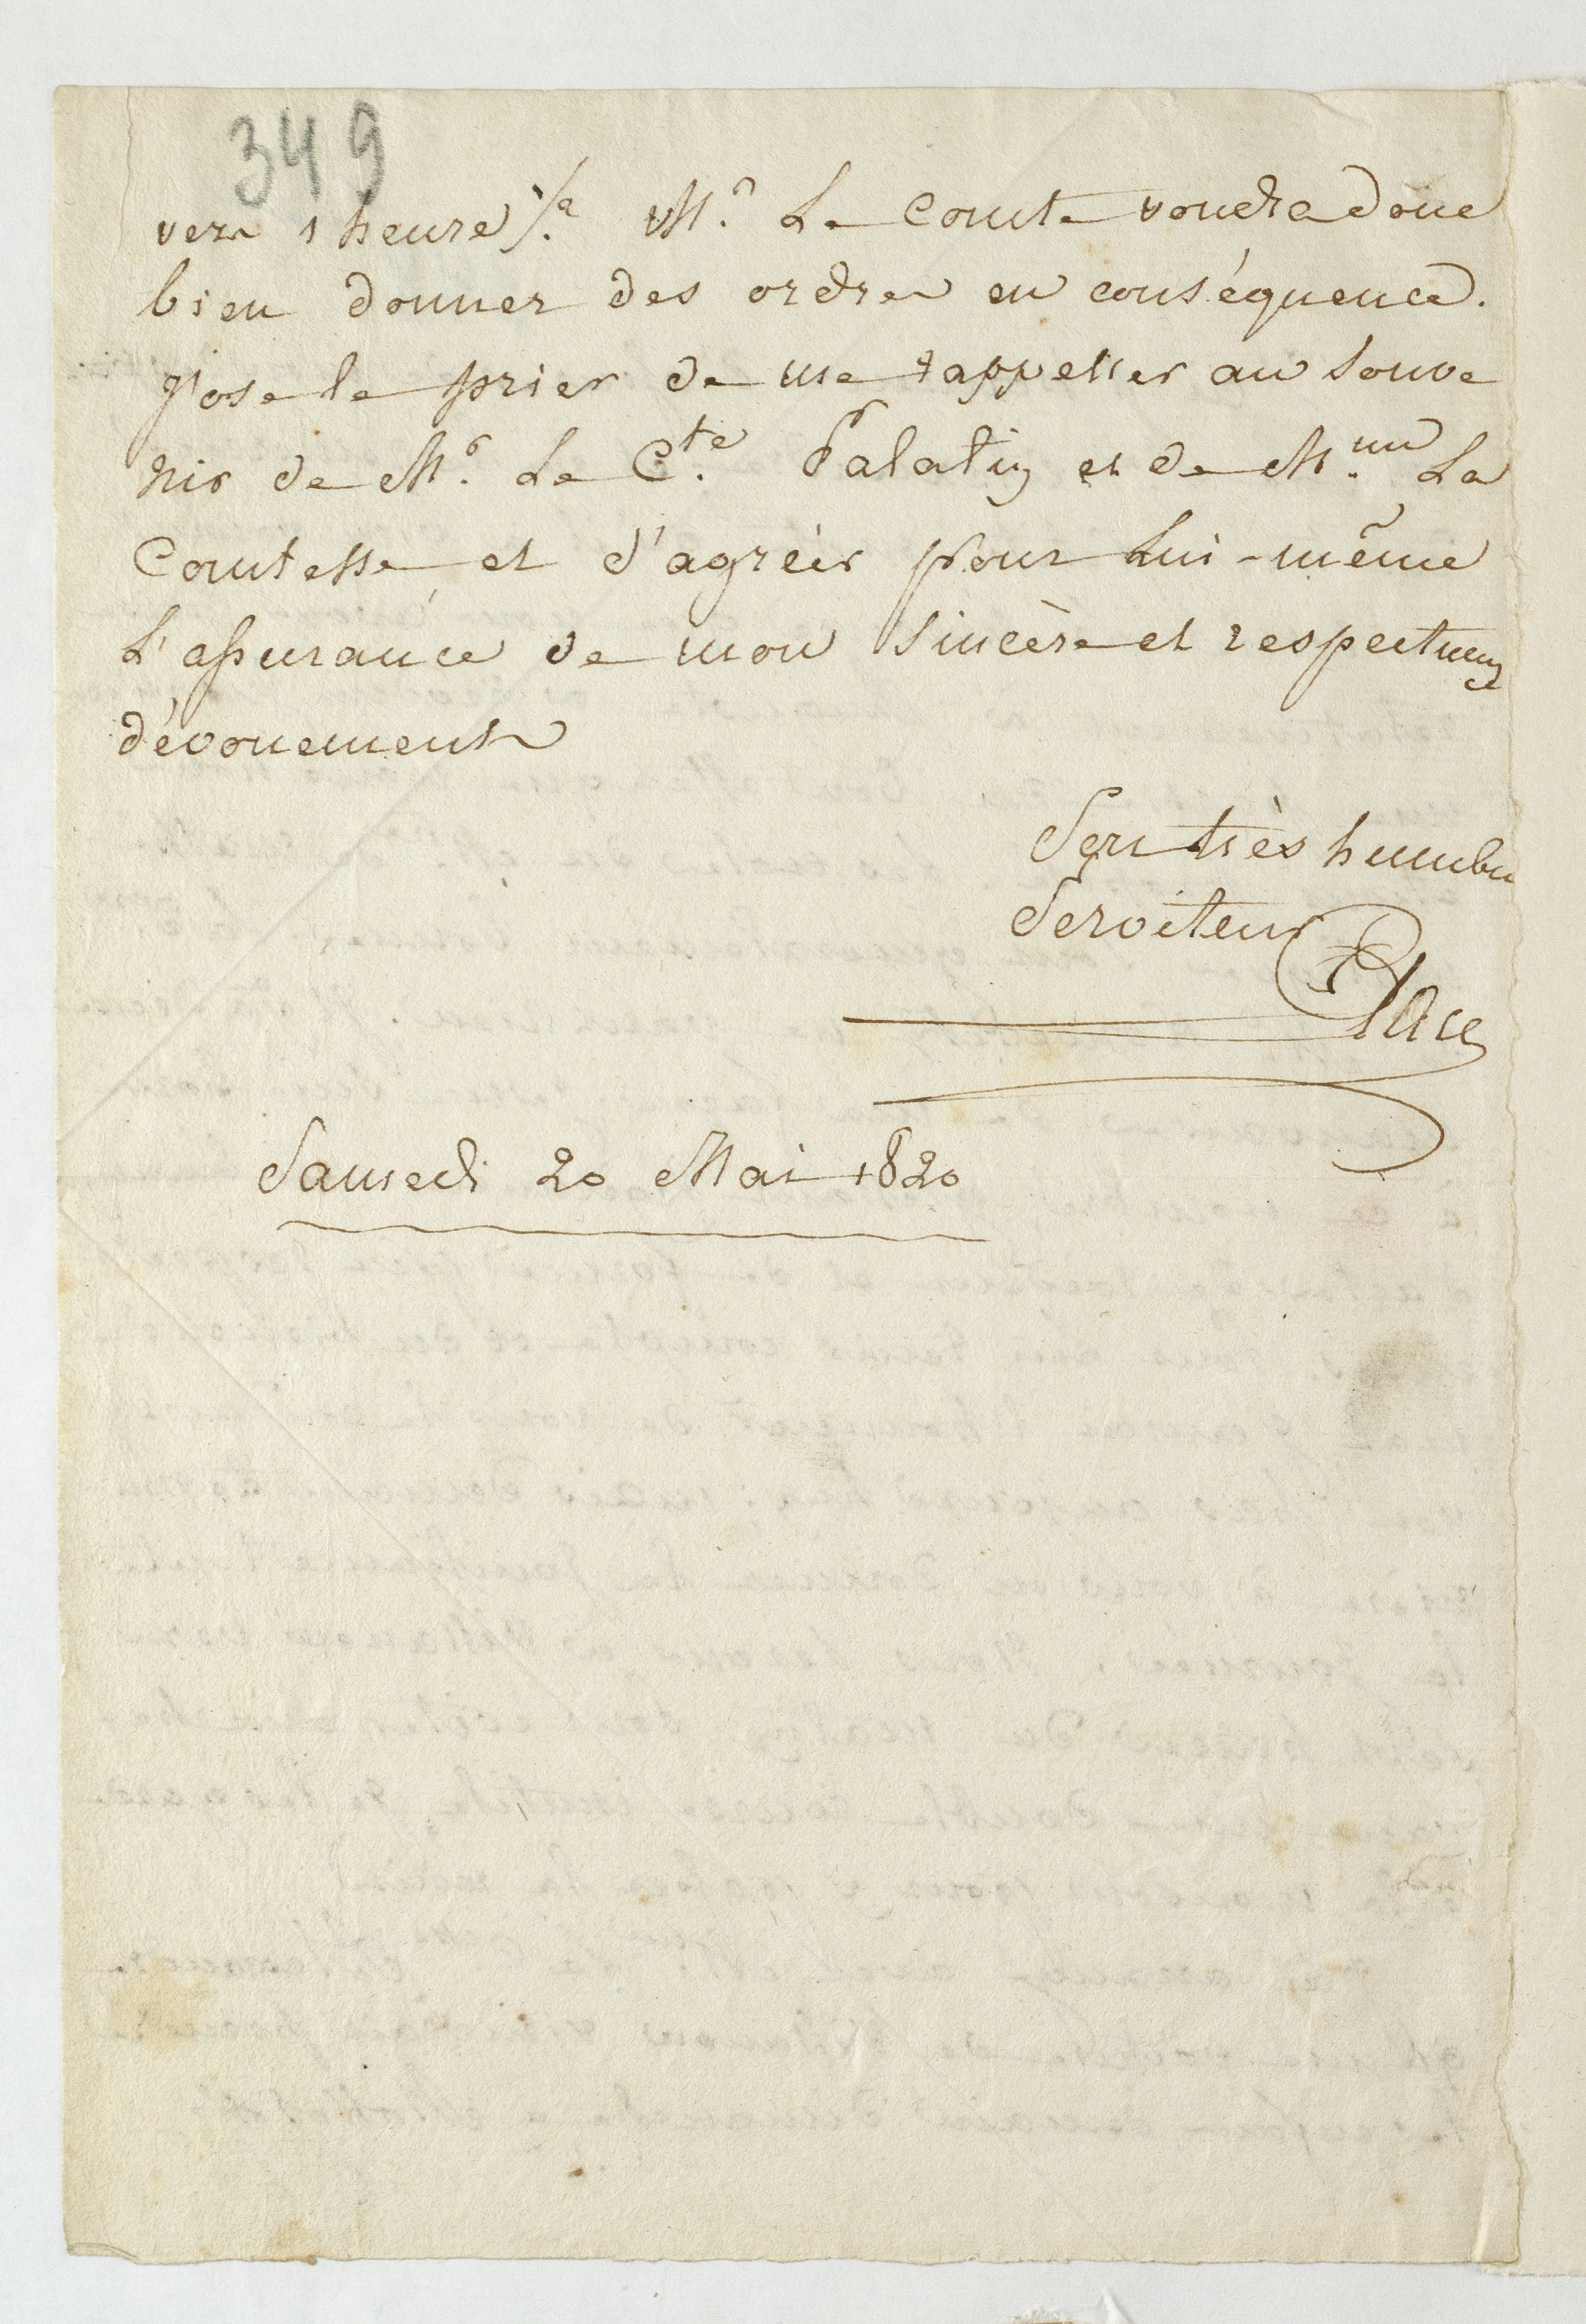 349
vers 1 heure ½. Mr. Le Comte voudra donc
bien donner des ordres en conséquence.
J'ose le prier de me rappeller au souve
nir de Mr. Le Cte. Palatin et de Mme. La
Comtesse, et d'agréer pour Lui-même
L'assurance de mon sincère et respectueux
dévouement
Son très humble
Serviteur
Place
Samedi 20 Mai 1820